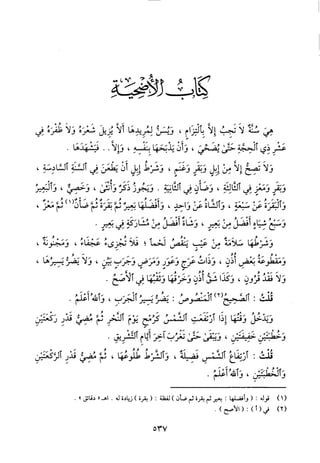 كِتَابُ الأُضْحِيَّةِ
هِيَ سُنَّةٌ لَا تَجِبُ إِلَّا بِالْتِزَامٍ ، وَيُسَنُّ لِمُرِيدِهَا أَلَّا يُزِيلَ شَعْرَهُ وَلَا ظُفُرَهُ فِي
عَشْرِ ذِي الْحِجَّةِ حَتَّىٰ يُضَحِّيَ ، وَأَنْ يَذْبَحَهَا بِنَفْسِهِ ، وَإِلَّا . . فَيَشْهَدُهَا .
وَلَا تَصِحُّ إِلَّا مِنْ إِبِلٍ وَبَقَرٍ وَغَنَمٍ ، وَشَرْطُ إِبِلٍ أَنْ يَطْعَنَ فِي السَّنَةِ السَّادِسَةِ ،
وَبَقَرٍ وَمَعْزٍ فِي الثَّالِثَةِ ، وَضَأْنٍ فِي الثَّانِيَةِ . وَيَجُوزُ ذَكَرٌ وَأُنْثَىٰ ، وَخَصِيٌّ ، وَالْبَعِيرُ
وَالْبَقَرَةُ عَنْ سَبْعَةٍ ، وَالشَّاةُ عَنْ وَاحِدٍ ، وَأَفْضَلُهَا بَعِيرٌ ثُمَّ بَقَرَةٌ ثُمَّ ضَأْنٌ(١) ثُمَّ مَعْزٌ ،
وَسَبْعُ شِيَاهٍ أَفْضَلُ مِنْ بَعِيرٍ ، وَشَاةٌ أَفْضَلُ مِنْ مُشَارَكَةٍ فِي بَعِيرٍ .
وَشَرْطُهَا سَلَامَةٌ مِنْ عَيْبٍ يَنْقُصُ لَحْماً ؛ فَلَا تُجْزِىءُ عَجْفَاءُ ، وَمَجْنُونَةٌ ،
وَمَقْطُوعَةُ بَعْضِ أُذُنٍ ، وَذَاتُ عَرَجٍ وَعَوَرٍ وَمَرَضٍ وَجَرَبٍ بَيِّنٍ ، وَلَا يَضُرُّ يَسِيرُهَا ،
وَلَا فَقْدُ قُرُونٍ ، وَكَذَا شَقُّ أُذُنٍ وَخَرْقُهَا وَثَقْبُهَا فِي الأَصَحِّ .
قُلْتُ : الصَّحِيحُ(٢) الْمَنْصُوصُ : يَضُرُّ يَسِيرُ الْجَرَبِ ، وَاللهُ أَعْلَمُ .
وَيَدْخُلُ وَقْتُهَا إِذَا ارْتَفَعَتِ الشَّمْسُ كَرُمْحٍ يَوْمَ النَّحْرِ ثُمَّ مَضَىٰ قَدْرُ رَكْعَتَيْنِ
وَخُطْبَتَيْنِ خَفِيفَتَيْنِ ، وَيَبْقَىٰ حَتَّىٰ تَغْرُبَ آخِرَ أَيَّامِ التَّشْرِيقِ .
قُلْتُ : ارْتِفَاعُ الشَّمْسِ فَضِيلَةٌ ، وَالشَّرْطُ طُلُوعُهَا ، ثُمَّ مُضِيُّ قَدْرِ الرَّكْعَتَيْنِ
وَالْخُطْبَتَيْنِ ، وَاللهُ أَعْلَمُ .
(١) قوله : ( وأفضلها : بعير ثم بقرة ثم ضأن ) لفظة : ( بقرة ) زيادة له . اهـ « دقائق » .
(٢) في ( أ ) : ( الأصح ) .
٥٣٧